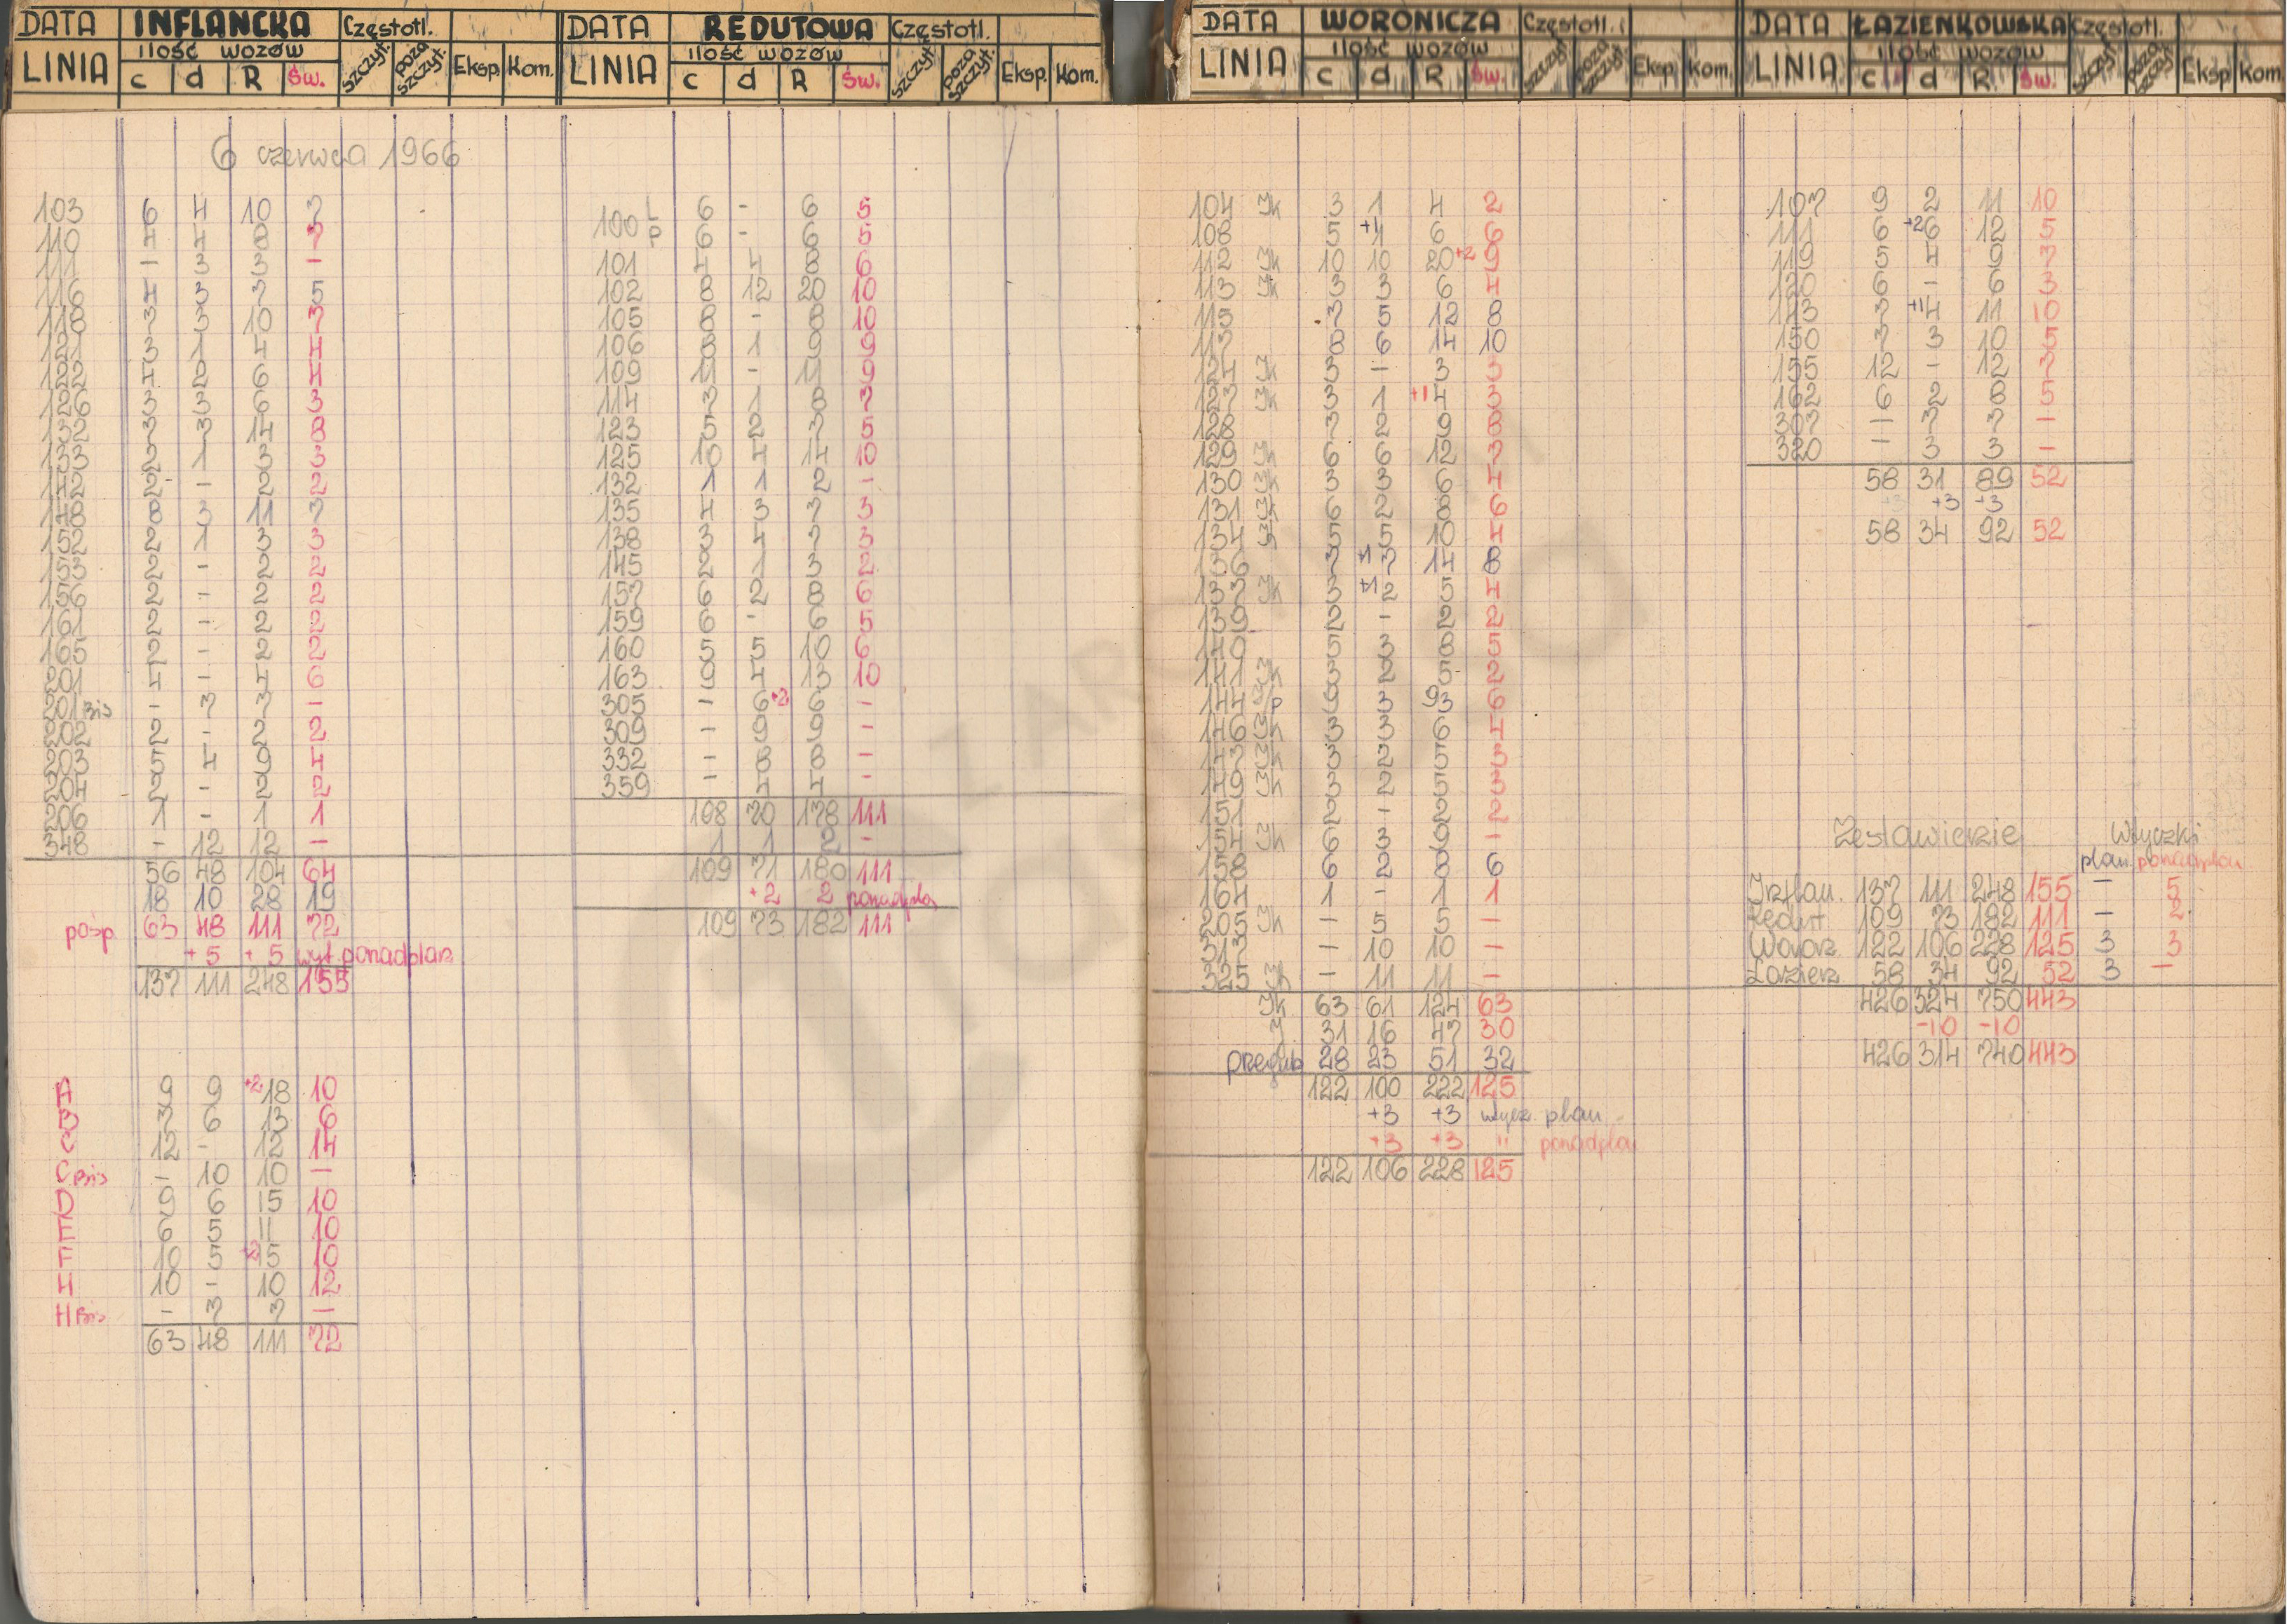 DATA INFLANCKA Częstotl.
LINIA ilość wozów c d R Św. szczyt. poza szczyt. Eksp. Kom.
6 czerwca 1966
103 6 4 10 7
110 4 4 8 7
111 - 3 3 -
116 4 3 7 5
118 7 3 10 7
121 3 1 4 4
122 4 2 6 4
126 3 3 6 3
132 7 7 14 8
133 2 1 3 3
142 2 - 2 2
148 8 3 11 7
152 2 1 3 3
153 2 - 2 2
156 2 - 2 2
161 2 - 2 2
165 2 - 2 2
201 4 - 4 6
201 Bis - 7 7 -
202 2 - 2 2
203 5 4 9 4
204 2 - 2 2
206 1 - 1 1
348 - 12 12 -
56 48 104 64
18 10 28 19
pośp. 63 48 111 72
+5 +5 wyt. ponadplan
137 111 248 155
A 9 9 +2 18 10
B 7 6 13 6
C 12 - 12 14
C Bis - 10 10 -
D 9 6 15 10
E 6 5 11 10
F 10 5 +2 15 10
H 10 - 10 12
H Bis - 7 7 -
63 48 111 72
DATA REDUTOWA Częstotl.
LINIA ilość wozów c d R Św. szczyt. poza szczyt. Eksp. Kom.
100 L 6 - 6 5
P 6 - 6 5
101 4 4 8 6
102 8 12 20 10
105 8 - 8 10
106 8 1 9 9
109 11 - 11 9
114 7 1 8 7
123 5 2 7 5
125 10 4 14 10
132 1 1 2 -
135 4 3 7 3
138 3 4 7 3
145 2 1 3 2
157 6 2 8 6
159 6 - 6 5
160 5 5 10 6
163 9 4 13 10
305 - 6 +2 6 -
309 - 9 9 -
332 - 8 8 -
359 - 4 4 -
108 70 178 111
1 1 2 -
109 71 180 111
+2 2 ponadplan
109 73 182 111
DATA WORONICZA Częstotl.
LINIA ilość wozów c d R Św. szczyt. poza szczyt. Eksp. Kom.
104 Jk 3 1 4 2
108 5 +1 1 6 6
112 Jk 10 10 20 +2 9
113 Jk 3 3 6 4
115 7 5 12 8
117 8 6 14 10
124 Jk 3 - 3 3
127 Jk 3 1 +1 4 3
128 7 2 9 8
129 Jk 6 6 12 7
130 Jk 3 3 6 4
131 Jk 6 2 8 6
134 Jk 5 5 10 4
136 7 +1 7 14 8
137 Jk 3 +1 2 5 4
139 2 - 2 2
140 5 3 8 5
141 Jk 3 2 5 2
144 J/P 9 3 93 6
146 Jk 3 3 6 4
147 Jk 3 2 5 3
149 Jk 3 2 5 3
151 2 - 2 2
154 Jk 6 3 9 -
158 6 2 8 6
164 1 - 1 1
205 Jk - 5 5 -
317 - 10 10 -
325 Jk - 11 11 -
Jk 63 61 124 63
J 31 16 47 30
przegub 28 23 51 32
122 100 222 125
+3 +3 wtycz. plan.
+3 +3 " ponadplan
122 106 228 125
DATA ŁAZIENKOWSKA Częstotl.
LINIA ilość wozów c d R Św. szczyt. poza szczyt. Eksp Kom
107 9 2 11 10
111 6 +2 6 12 5
119 5 4 9 7
120 6 - 6 3
143 7 +1 4 11 10
150 7 3 10 5
155 12 - 12 7
162 6 2 8 5
307 - 7 7 -
320 - 3 3 -
58 31 89 52
+3 +3
58 34 92 52
Zestawienie Wtyczki
plan. ponadplan
Inflan. 137 111 248 155 - 5
Redut 109 73 182 111 - 2
Woron. 122 106 228 125 3 3
Łazien. 58 34 92 52 3 -
426 324 750 443
-10 -10
426 314 740 443